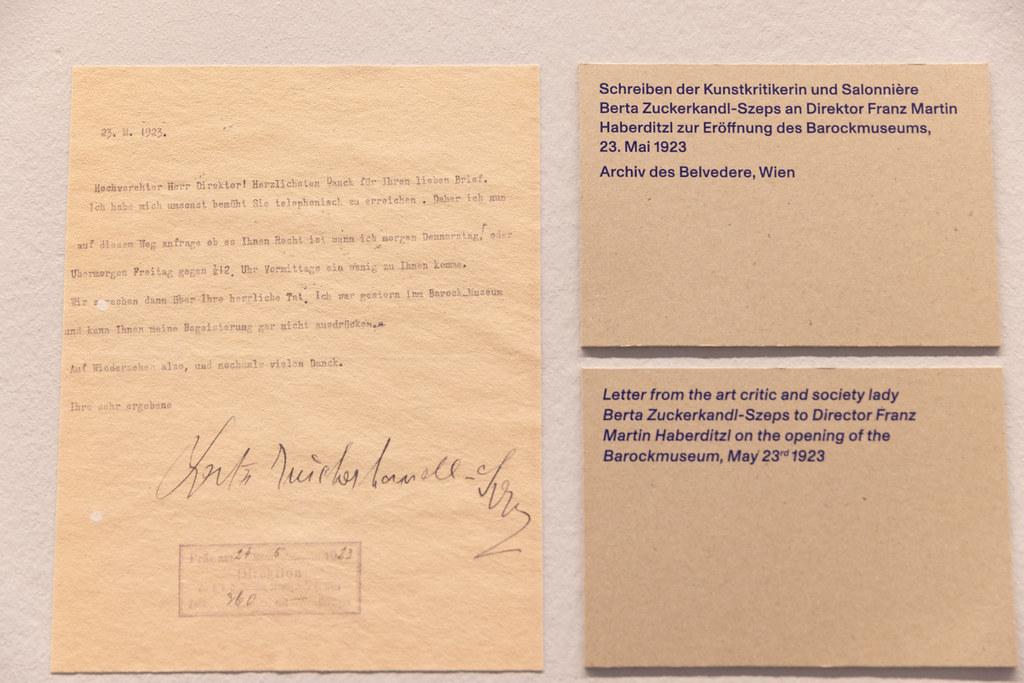 23. M. 1923.
Hochverehter Herr Direktor! Herzlichsten Danck für Ihren lieben Brief.
Ich habe mich umsonst bemüht Sie telephonisch zu erreichen . Daher ich nun
auf diesem Weg anfrage ob es Ihnen Recht ist wann ich morgen Donnerstag, oder
Ubermorgen Freitag gegen ½12. Uhr Vormittags ein wenig zu Ihnen komme.
Wir sprechen dann über Ihre herrliche Tat. Ich war gestern im Barock Museum
und kann Ihnen meine Begeisterung gar nicht ausdrücken.
Auf Wiedersehen also, und nochmals vielen Danck.
Ihre sehr ergebene
Berta Zuckerkandl-Szeps
27 5 1923
Direktion
360
Schreiben der Kunstkritikerin und Salonnière
Berta Zuckerkandl-Szeps an Direktor Franz Martin
Haberditzl zur Eröffnung des Barockmuseums,
23. Mai 1923
Archiv des Belvedere, Wien
Letter from the art critic and society lady
Berta Zuckerkandl-Szeps to Director Franz
Martin Haberditzl on the opening of the
Barockmuseum, May 23rd 1923